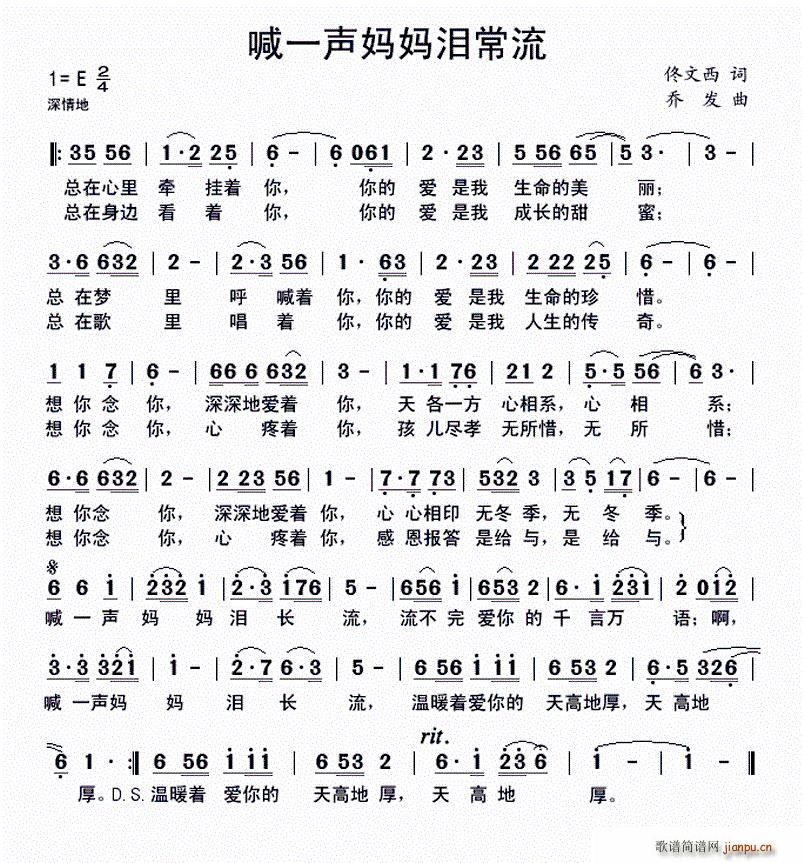 喊一声妈妈泪常流
1=E 2/4
佟文西 词
深情地
乔 发 曲
‖: 35 56 | 1·2 225 | 6 - | 6 061 | 2·23 | 5 56 65 | 5 3· | 3 - |
总在心里 牵 挂着 你, 你的 爱 是我 生命的美 丽;
总在身边 看 着 你, 你的 爱 是我 成长的甜 蜜;
3·6 632 | 2 - | 2·3 56 | 1· 63 | 2·23 | 2 22 25 | 6 - | 6 - |
总 在梦 里 呼 喊着 你,你的 爱 是我 生命的珍 惜。
总 在歌 里 唱 着 你,你的 爱 是我 人生的传 奇。
1 1 7 | 6 - | 66 6 632 | 3 - | 1·1 76 | 21 2 | 5·5 56 | 6 3· |
想 你 念 你, 深深地爱着 你, 天 各一方 心相系,心 相 系;
想 你 念 你, 心 疼着 你, 孩 儿尽孝 无所惜,无 所 惜;
6·6 632 | 2 - | 2 23 56 | 1 - | 7·7 73 | 532 3 | 35 17 | 6 - | 6 - |
想 你念 你, 深深地爱着 你, 心 心相印 无冬 季,无 冬 季。
想 你念 你, 心 疼着 你, 感 恩报答 是给 与,是 给 与。
6 6 1 | 232 1 | 2·3 176 | 5 - | 656 1 | 653 2 | 6·1 231 | 2 012 |
喊 一 声 妈 妈 泪 长 流, 流不 完 爱你 的 千 言万 语;啊,
3·3 321 | 1 - | 2·7 6·3 | 5 - | 6 56 1 11 | 6 53 2 | 6·5 326 |
喊 一声妈 妈 泪 长 流, 温暖着爱你的 天高地厚,天 高地
rit.
6 1· :‖ 6 56 1 11 | 6 53 2 | 6·1 236 | 1 - | 1 - ‖
厚。D.S.温暖着 爱你的 天高地 厚, 天 高 地 厚。
歌谱简谱网
jianpu.cn